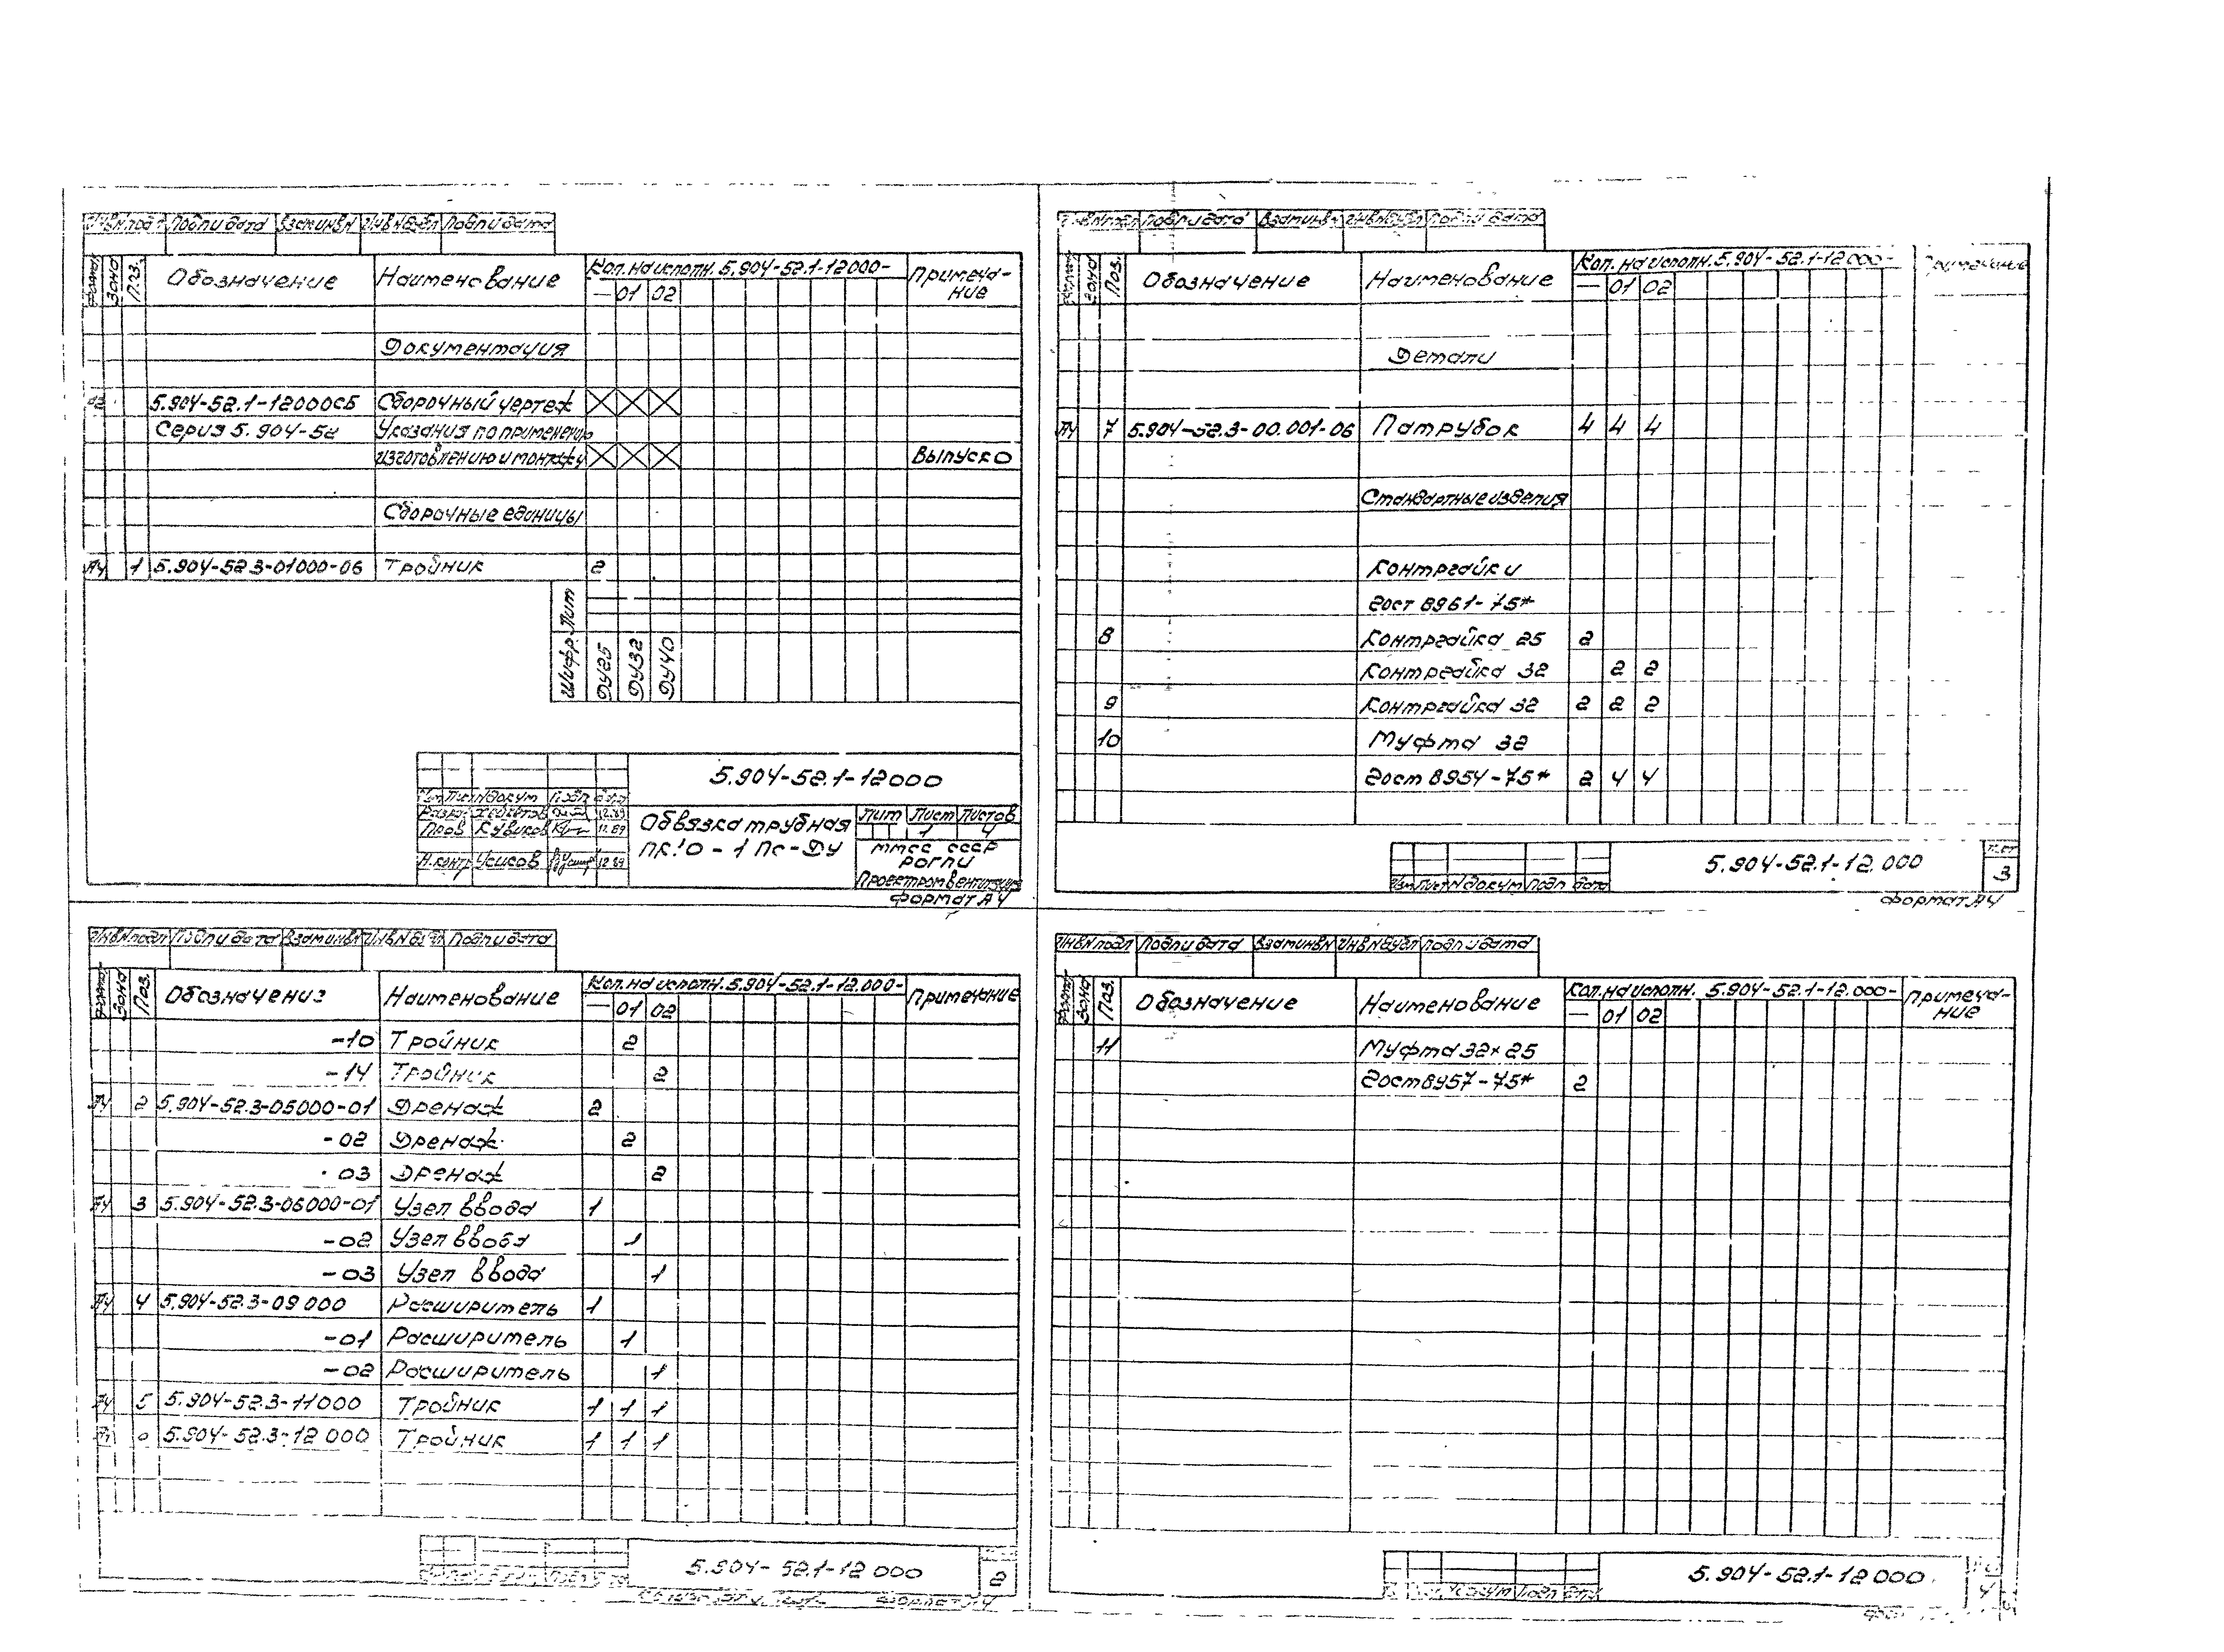 Инв.N подл Подп и дата Взам инв N Инв N дубл Подп и дата
Формат Зона Поз. Обозначение Наименование Кол. на исполн. 5.904-52.1-12000- Примеча-ние
— 01 02
Документация
5.904-52.1-12000СБ Сборочный чертеж
Серия 5.904-52 Указания по применению
изготовлению и монтажу Выпуск 0
Сборочные единицы
А4 1 5.904-52.3-01000-06 Тройник 2
Шифр Лит
Ду25 Ду32 Ду40
5.904-52.1-12000
Изм Лист N докум Подп Дата
12.89
Пров Кувиков 11.89
Н.контр Усиков 12.89
Обвязка трубная
ПК10-1 ПС-ДУ
Лит Лист Листов
1 4
ММСС СССР
РОГПИ
Проектпромвентиляция
формат А4
Инв N подл Подп и дата Взам инв N Инв N дубл Подп и дата
Формат Зона Поз. Обозначение Наименование Кол. на исполн. 5.904-52.1-12.000- Примечание
01 02
-10 Тройник 2
-14 Тройник 2
А4 2 5.904-52.3-05000-01 Дренаж 2
-02 Дренаж 2
03 Дренаж 2
А4 3 5.904-52.3-06000-01 Узел ввода 1
-02 Узел ввода 1
-03 Узел ввода 1
А4 4 5.904-52.3-09 000 Расширитель 1
-01 Расширитель 1
-02 Расширитель 1
А4 5 5.904-52.3-11000 Тройник 1 1 1
5.904-52.3-12 000 Тройник 1 1 1
5.904-52.1-12 000 2
формат А4
Инв N подл Подп и дата Взам инв N Инв N дубл Подп и дата
Формат Зона Поз. Обозначение Наименование Кол. на исполн. 5.904-52.1-12000- Примечание
— 01 02
Детали
А4 7 5.904-52.3-00.001-06 Патрубок 4 4 4
Стандартные изделия
Контргайки
Гост 8961-75*
8 Контргайка 25 2
Контргайка 32 2 2
9 Контргайка 32 2 2 2
10 Муфта 32
Гост 8954-75* 2 4 4
Изм Лист N докум Подп дата
5.904-52.1-12.000 Лист 3
формат А4
Инв N подл Подп и дата Взам инв N Инв N дубл Подп и дата
Формат Зона Поз. Обозначение Наименование Кол. на исполн. 5.904-52.1-12.000- Примеча-ние
— 01 02
11 Муфта 32×25
Гост 8957-75* 2
5.904-52.1-12 000. 4